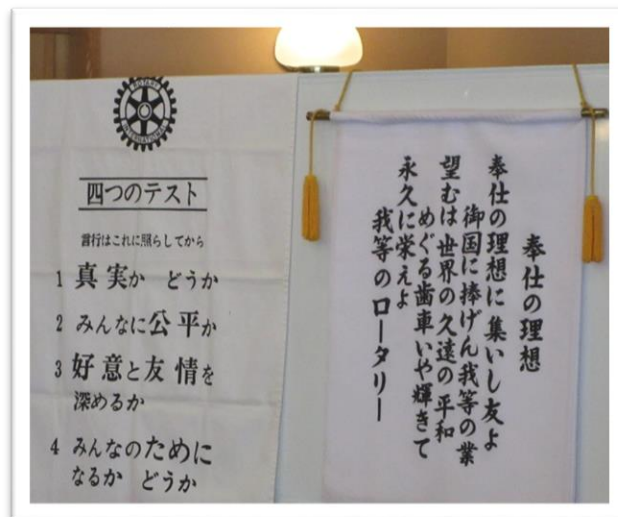 ROTARY
INTERNATIONAL
四つのテスト
言行はこれに照らしてから
1 真実か どうか
2 みんなに公平か
3 好意と友情を
深めるか
4 みんなのために
なるか どうか
奉仕の理想
奉仕の理想に集いし友よ
御国に捧げん我等の業
望むは世界の久遠の平和
めぐる歯車いや輝きて
永久に栄えよ
我等のロータリー